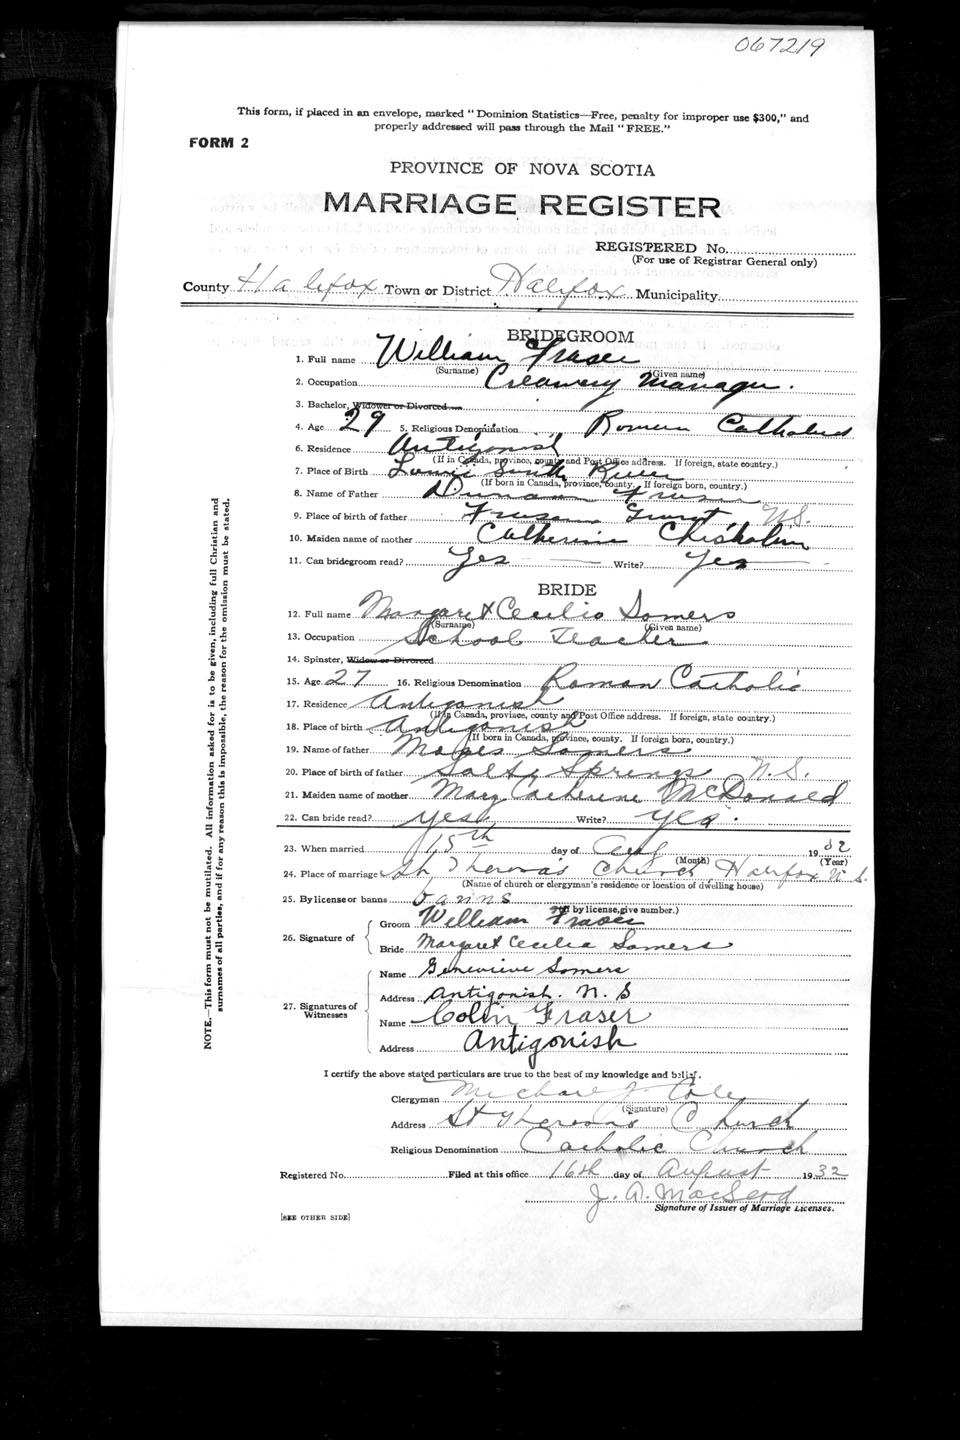 067219
This form, if placed in an envelope, marked "Dominion Statistics—Free, penalty for improper use $300," and
properly addressed will pass through the Mail "FREE."
FORM 2
PROVINCE OF NOVA SCOTIA
MARRIAGE REGISTER
REGISTERED No.
(For use of Registrar General only)
County Halifax Town or District Halifax Municipality
BRIDEGROOM
1. Full name William Fraser
(Surname) (Given name)
2. Occupation Creamery Manager.
3. Bachelor, Widower or Divorced
4. Age 29 5. Religious Denomination Roman Catholic
6. Residence Antigonish
(If in Canada, province, county and Post Office address. If foreign, state country.)
7. Place of Birth South River
(If born in Canada, province, county. If foreign born, country.)
8. Name of Father Duncan Fraser
9. Place of birth of father Frasers N.S.
10. Maiden name of mother Catherine Chisholm
11. Can bridegroom read? Yes Write? Yes
BRIDE
12. Full name Margaret Cecilia Somers
(Surname) (Given name)
13. Occupation School Teacher
14. Spinster, Widow or Divorced
15. Age 27 16. Religious Denomination Roman Catholic
17. Residence Antigonish
(If in Canada, province, county and Post Office address. If foreign, state country.)
18. Place of birth Antigonish
(If born in Canada, province, county. If foreign born, country.)
19. Name of father Moses Somers
20. Place of birth of father Salt Springs N.S.
21. Maiden name of mother Mary Catherine McDonald
22. Can bride read? yes Write? yes.
23. When married 15th day of Aug 1932
(Month) (Year)
24. Place of marriage St. Theresa's Church Halifax N.S.
(Name of church or clergyman's residence or location of dwelling house)
25. By license or banns banns
(If by license, give number.)
26. Signature of Groom William Fraser
Bride Margaret Cecilia Somers
27. Signatures of Witnesses Name Genevieve Somers
Address Antigonish. N.S
Name Colin Fraser
Address Antigonish
I certify the above stated particulars are true to the best of my knowledge and belief.
Clergyman Michael J. Cole
(Signature)
Address St Theresa's Church
Religious Denomination Catholic Church
Registered No. Filed at this office 16th day of August 1932
J. A. MacLeod
Signature of Issuer of Marriage Licenses.
[SEE OTHER SIDE]
NOTE.—This form must not be mutilated. All information asked for is to be given, including full Christian and
surnames of all parties, and if for any reason this is impossible, the reason for the omission must be stated.